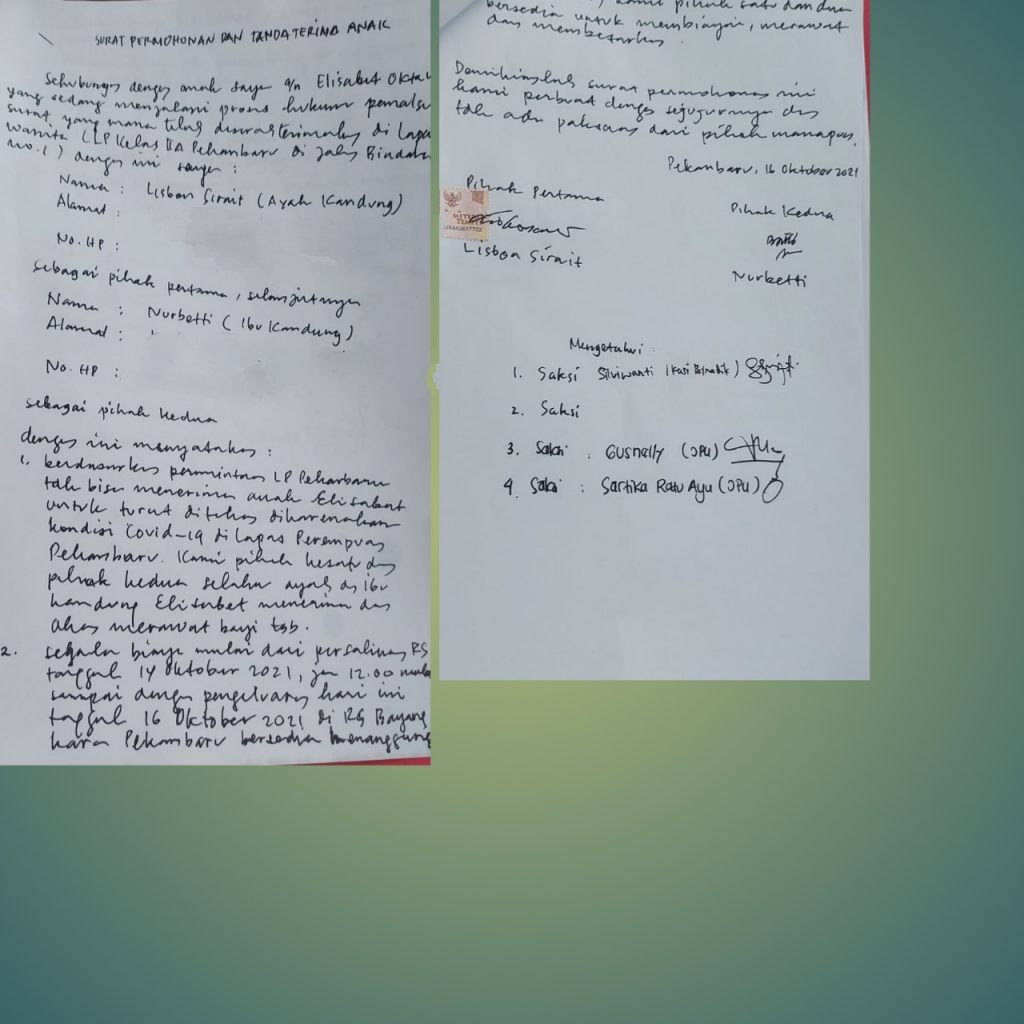 SURAT PERMOHONAN DAN TANDA TERIMA ANAK
Sehubungan dengan anak saya a/n Elisabet Oktav
yang sedang menjalani proses hukum pemalsu
surat yang mana telah diserahterimakan di Lapa
wanita (LP Kelas IIA Pekanbaru di jalan Bindan
no.1) dengan ini saya :
Nama : Lisbon Sirait (Ayah Kandung)
Alamat :
No. HP :
sebagai pihak pertama, selanjutnya
Nama : Nurbetti (Ibu Kandung)
Alamat :
No. HP :
sebagai pihak kedua
dengan ini menyatakan :
1. berdasarkan permintaan LP Pekanbaru
tak bisa menerima anak Elisabet
untuk turut ditahan dikarenakan
kondisi Covid-19 di Lapas Perempuan
Pekanbaru. Kami pihak kesatu dan
pihak kedua selaku ayah dan ibu
kandung Elisabet menerima dan
akan merawat bayi tsb.
2. segala biaya mulai dari persalinan RS
tanggal 14 Oktober 2021, jam 12.00 mulai
sampai dengan pengeluaran hari ini
tanggal 16 Oktober 2021 di RS Bayang
kara Pekanbaru bersedia menanggung
kami pihak satu dan dua
bersedia untuk membiayai, merawat
dan membesarkan.
Demikianlah surat permohonan ini
kami perbuat dengan sejujurnya dan
tak ada paksaan dari pihak manapun.
Pekanbaru, 16 Oktober 2021
Pihak Pertama
Pihak Kedua
METERAI
TEMPEL
Lisbon Sirait
Nurbetti
Mengetahui :
1. Saksi Silviwanti (Kasi Binadik)
2. Saksi
3. Saksi : Gusnelly (JPU)
4. Saksi : Sartika Ratu Ayu (JPU)